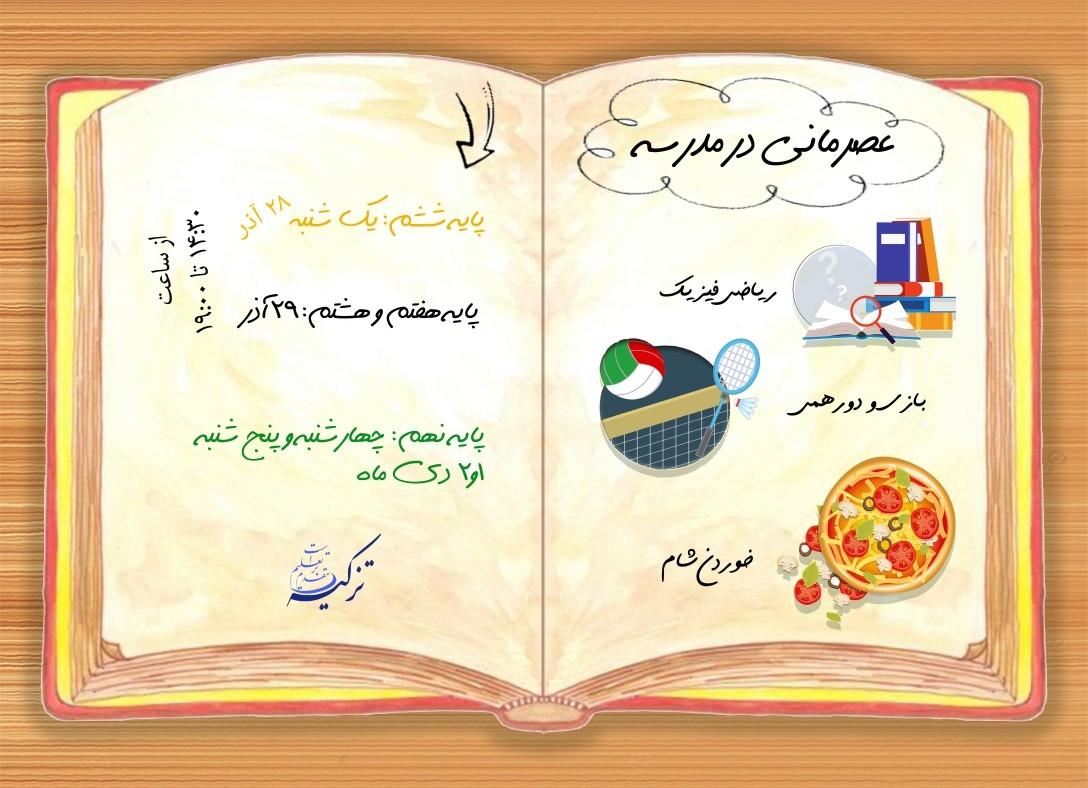 عصرمانی در مدرسه
ریاضی فیزیک
بازی و دورهمی
خوردن شام
پایه ششم: یک شنبه ۲۸ آذر
پایه هفتم و هشتم: ۲۹ آذر
پایه نهم: چهارشنبه و پنج شنبه
۱و۲ دی ماه
از ساعت
۱۴:۳۰ تا ۱۹:۰۰
تزکیه
مقدم بر تعلیم است